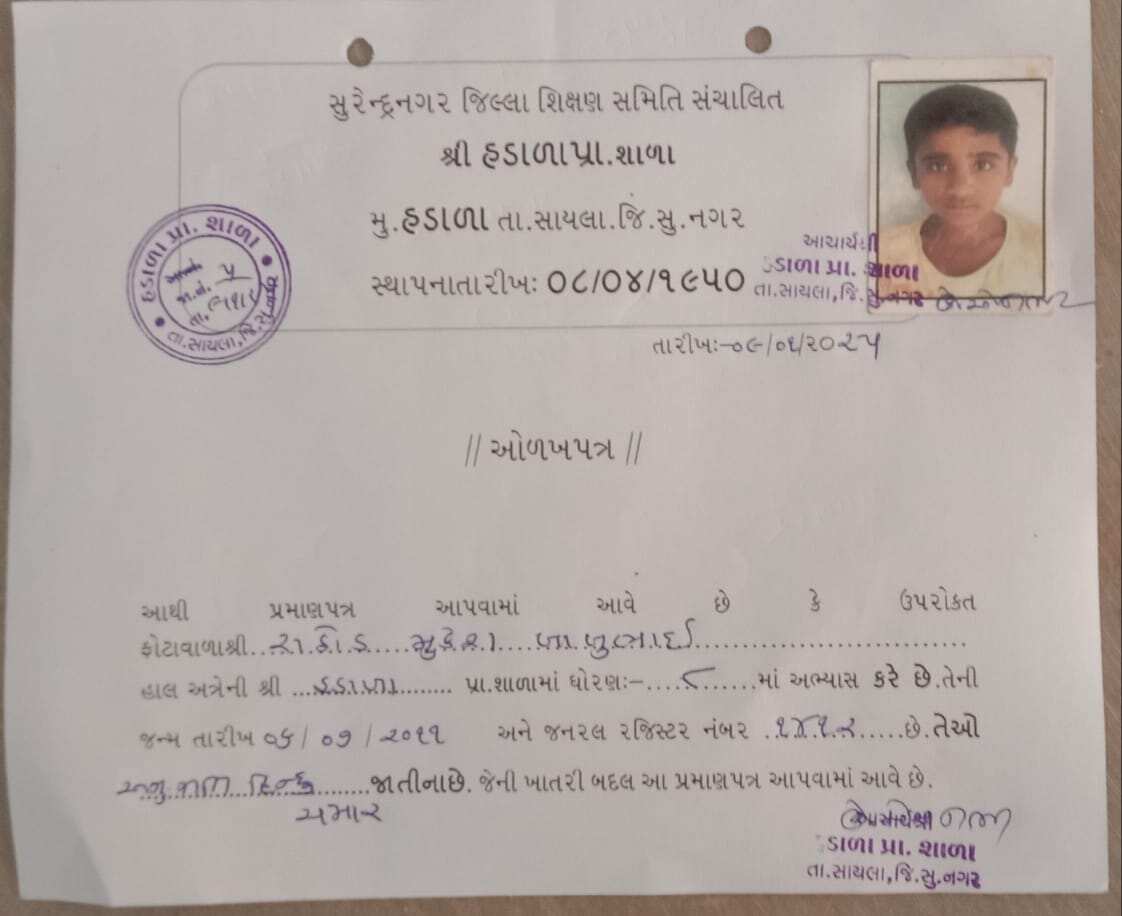 સુરેન્દ્રનગર જિલ્લા શિક્ષણ સમિતિ સંચાલિત
શ્રી હડાળા પ્રા.શાળા
મુ.હડાળા તા.સાયલા.જિ.સુ.નગર
સ્થાપનાતારીખઃ ૦૮/૦૪/૧૯૫૦
હડાળા પ્રા. શાળા
તા.સાયલા,જિ.સુ.નગર
આચાર્યશ્રી
ડાળા પ્રા. શાળા
તા.સાયલા,જિ.સુ.નગર
તારીખઃ-૦૯/૦૬/૨૦૨૫
// ઓળખપત્ર //
આથી પ્રમાણપત્ર આપવામાં આવે છે કે ઉપરોકત
ફોટાવાળાશ્રી..રાઠોડ.....મુકેશ.....બાબુભાઈ..............................
હાલ અત્રેની શ્રી ...હડાળા........ પ્રા.શાળામાં ધોરણઃ-....૮.......માં અભ્યાસ કરે છે.તેની
જન્મ તારીખ ૦૬/ ૦૭ / ૨૦૧૧ અને જનરલ રજિસ્ટર નંબર ..૧૪૧૨.....છે.તેઓ
અનુ.જાતિ હિન્દુ........જાતીનાછે. જેની ખાતરી બદલ આ પ્રમાણપત્ર આપવામાં આવે છે.
ચમાર
આચાર્યશ્રી
ડાળા પ્રા. શાળા
તા.સાયલા,જિ.સુ.નગર